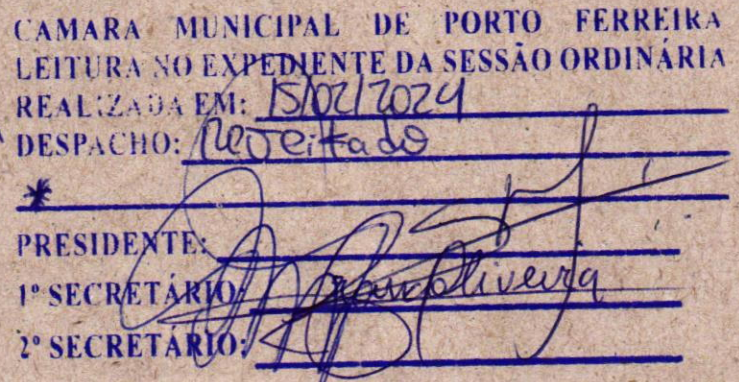 CAMARA MUNICIPAL DE PORTO FERREIRA
LEITURA NO EXPEDIENTE DA SESSÃO ORDINÁRIA
REALIZADA EM: 15/02/2024
DESPACHO: Rejeitado
*
PRESIDENTE:
1º SECRETÁRIO: Oliveira
2º SECRETÁRIO: